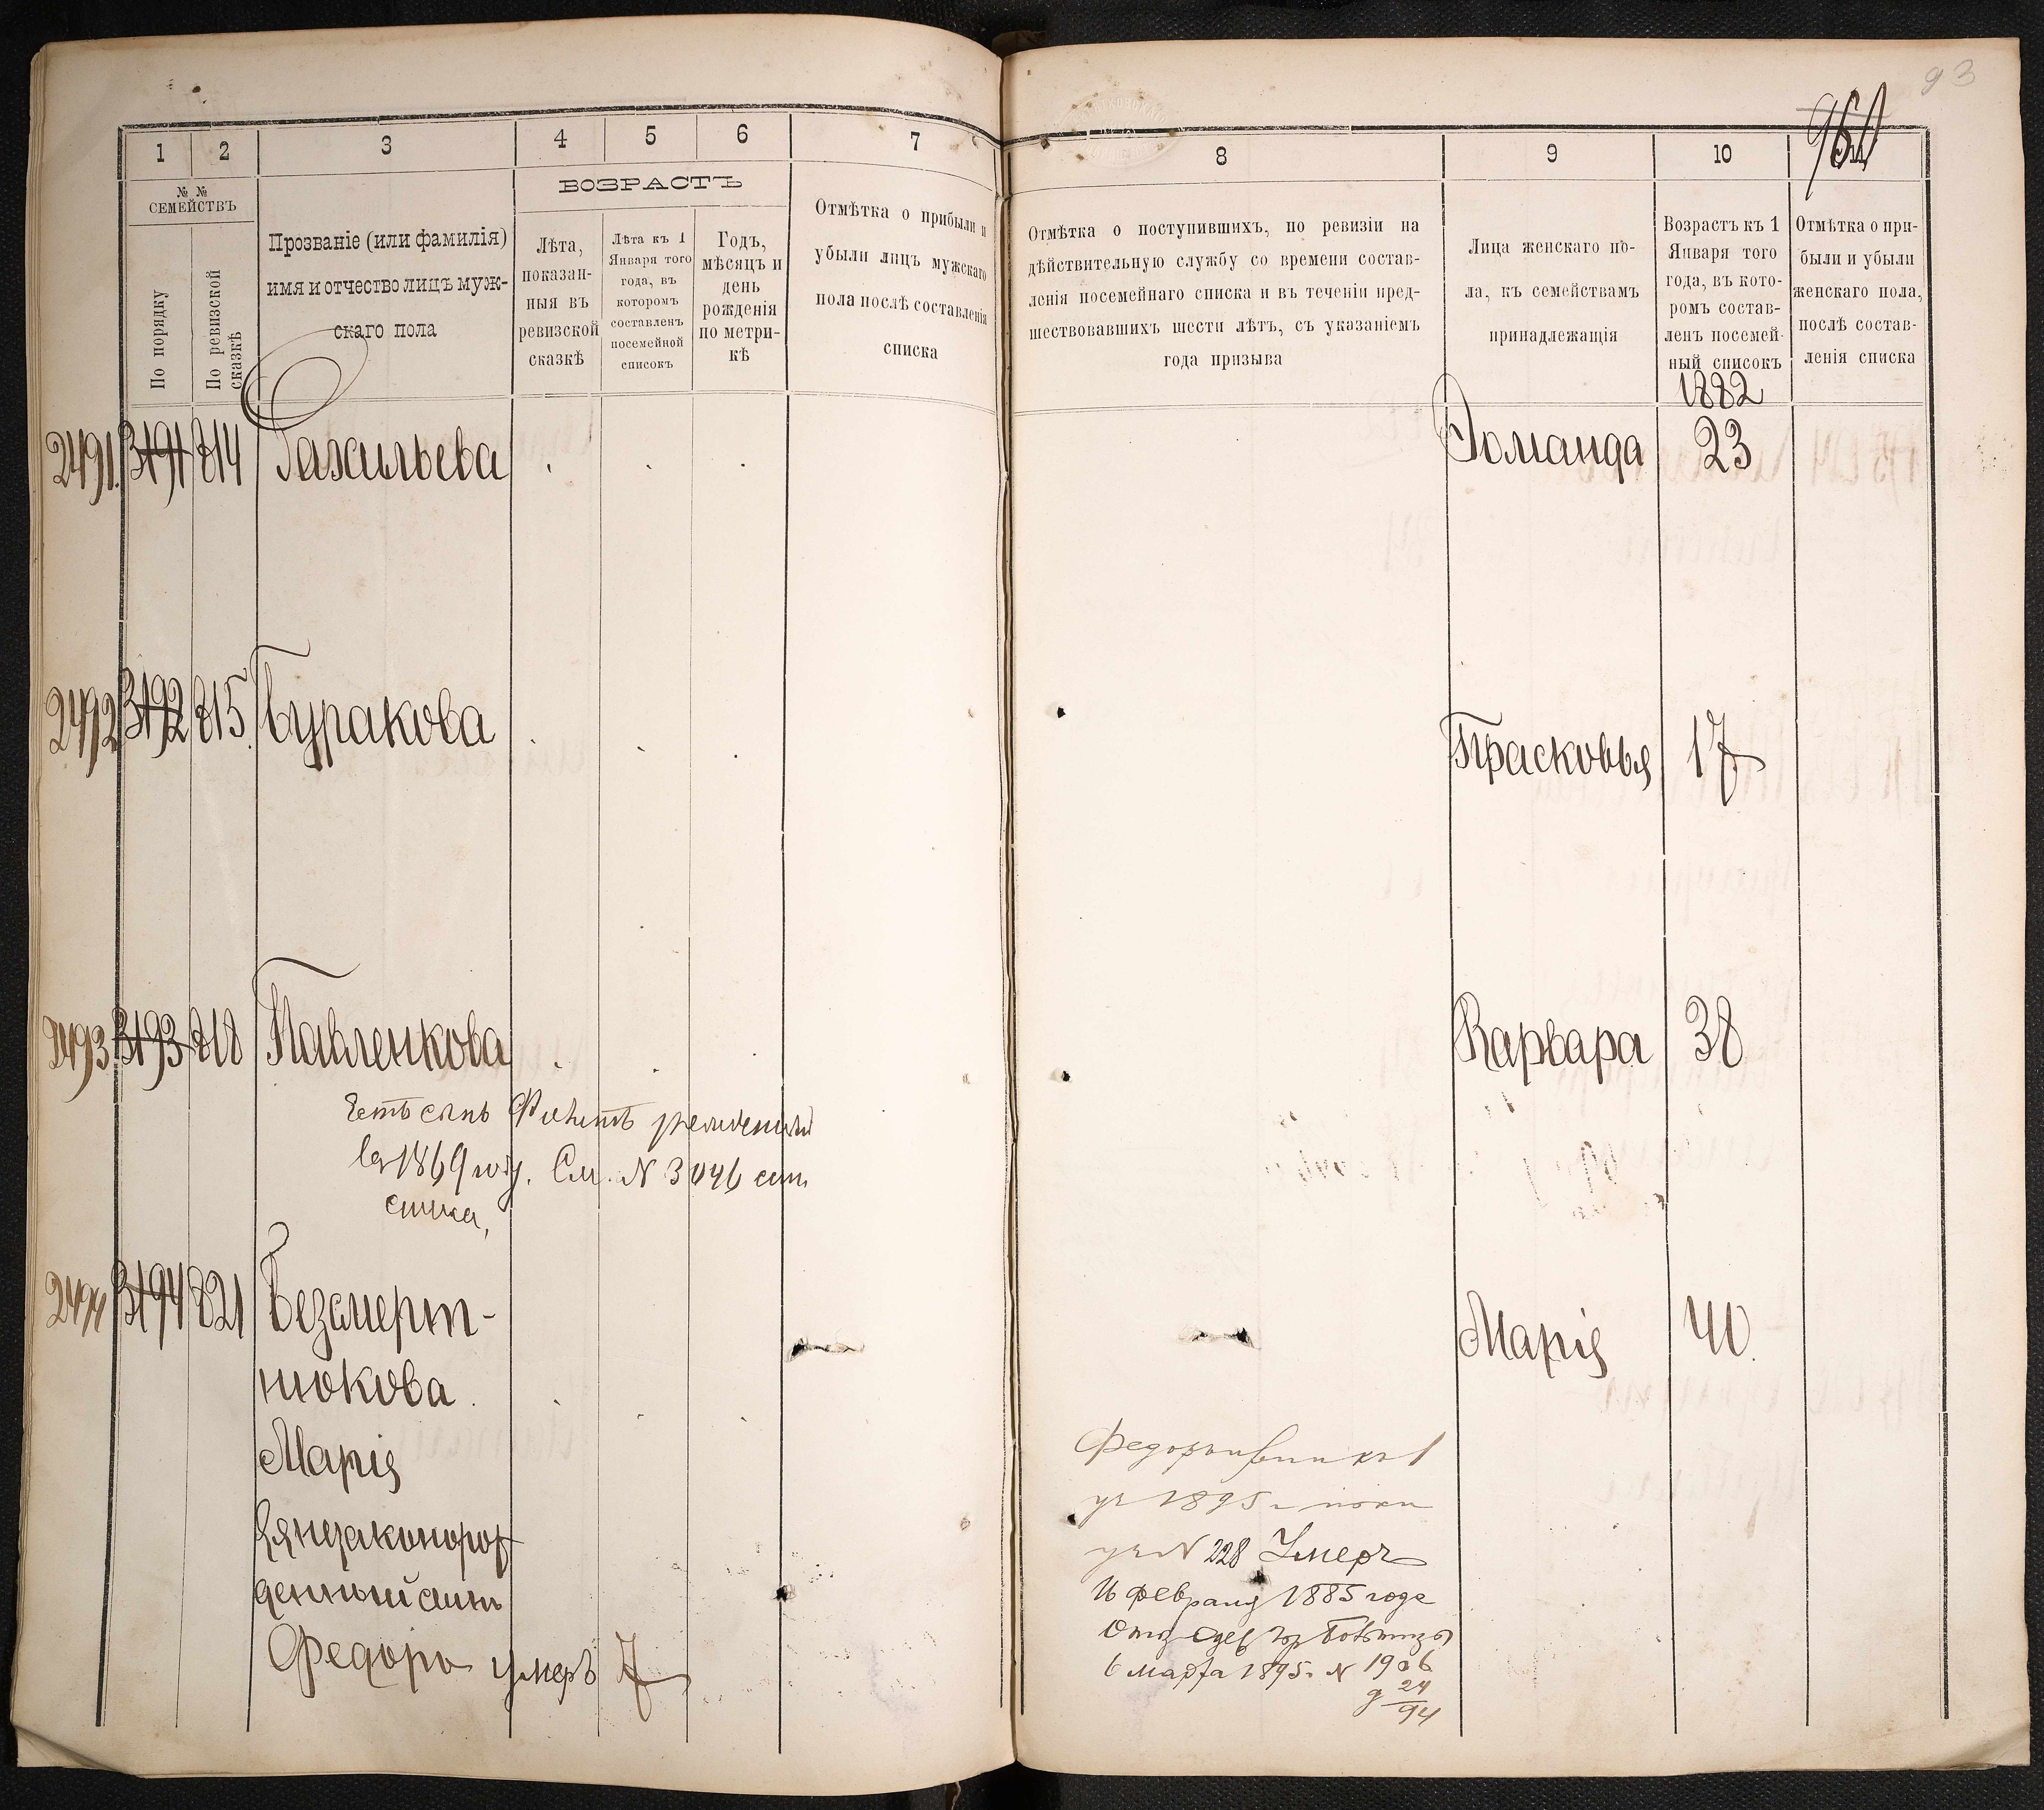 93
1 2 3 4 5 6 7
№ № СЕМЕЙСТВЪ
По порядку
По ревизской сказкѣ
Прозваніе (или фамилія)
имя и отчество лицъ муж-
скаго пола
ВОЗРАСТЪ
Лѣта,
показан-
ныя въ
ревизской
сказкѣ
Лѣта къ 1
Января того
года, въ
которомъ
составленъ
посемейной
списокъ
Годъ,
мѣсяцъ и
день
рожденія
по метри-
кѣ
Отмѣтка о прибыли и
убыли лицъ мужскаго
пола послѣ составленія
списка
8 9 10 11
Отмѣтка о поступившихъ, по ревизіи на
дѣйствительную службу со времени состав-
ленія посемейнаго списка и въ теченіи пред-
шествовавшихъ шести лѣтъ, съ указаніемъ
года призыва
Лица женскаго по-
ла, къ семействамъ
принадлежащія
Возрастъ къ 1
Января того
года, въ кото-
ромъ состав-
ленъ посемей-
ный списокъ
1882
Отмѣтка о при-
были и убыли
женскаго пола,
послѣ состав-
ленія списка
2491. 3191 814 23
2492 3192 815. Буракова Прасковья 17
2493. 3193 818 Павленкова Варвара 38
Есть сынъ
въ 1869 году. См. N 3046
2494 3194 821 Безсмерт- Марія 40.
нюкова.
Марія
Ея незаконорож
денный сынъ
Федоръ умеръ 7
1895 г
N 228 Умеръ
16 Февраля 1885 года
6 Марта 1895 г. N 1906
24
94